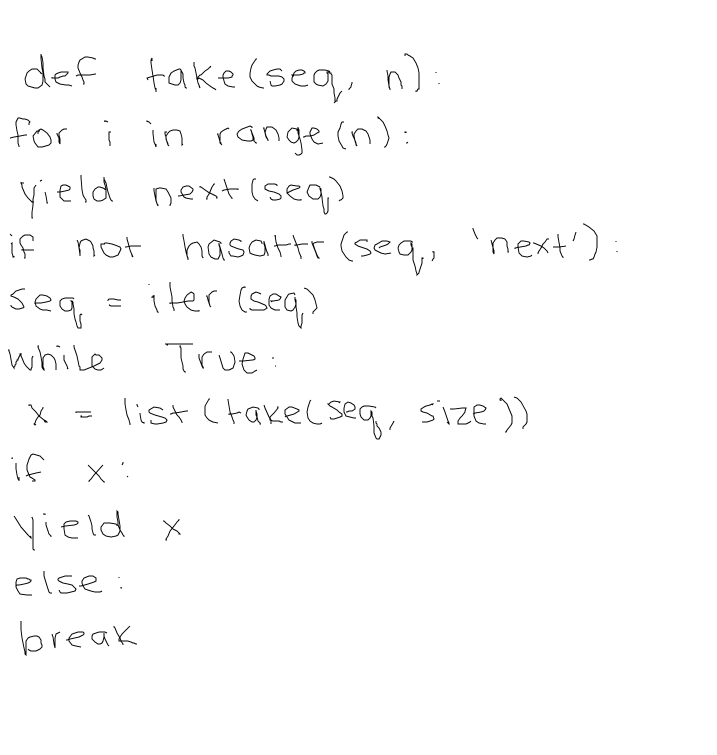 def take(seq, n):
for i in range(n):
yield next(seq)
if not hasattr(seq, 'next'):
seq = iter(seq)
while True:
x = list(take(seq, size))
if x:
yield x
else:
break